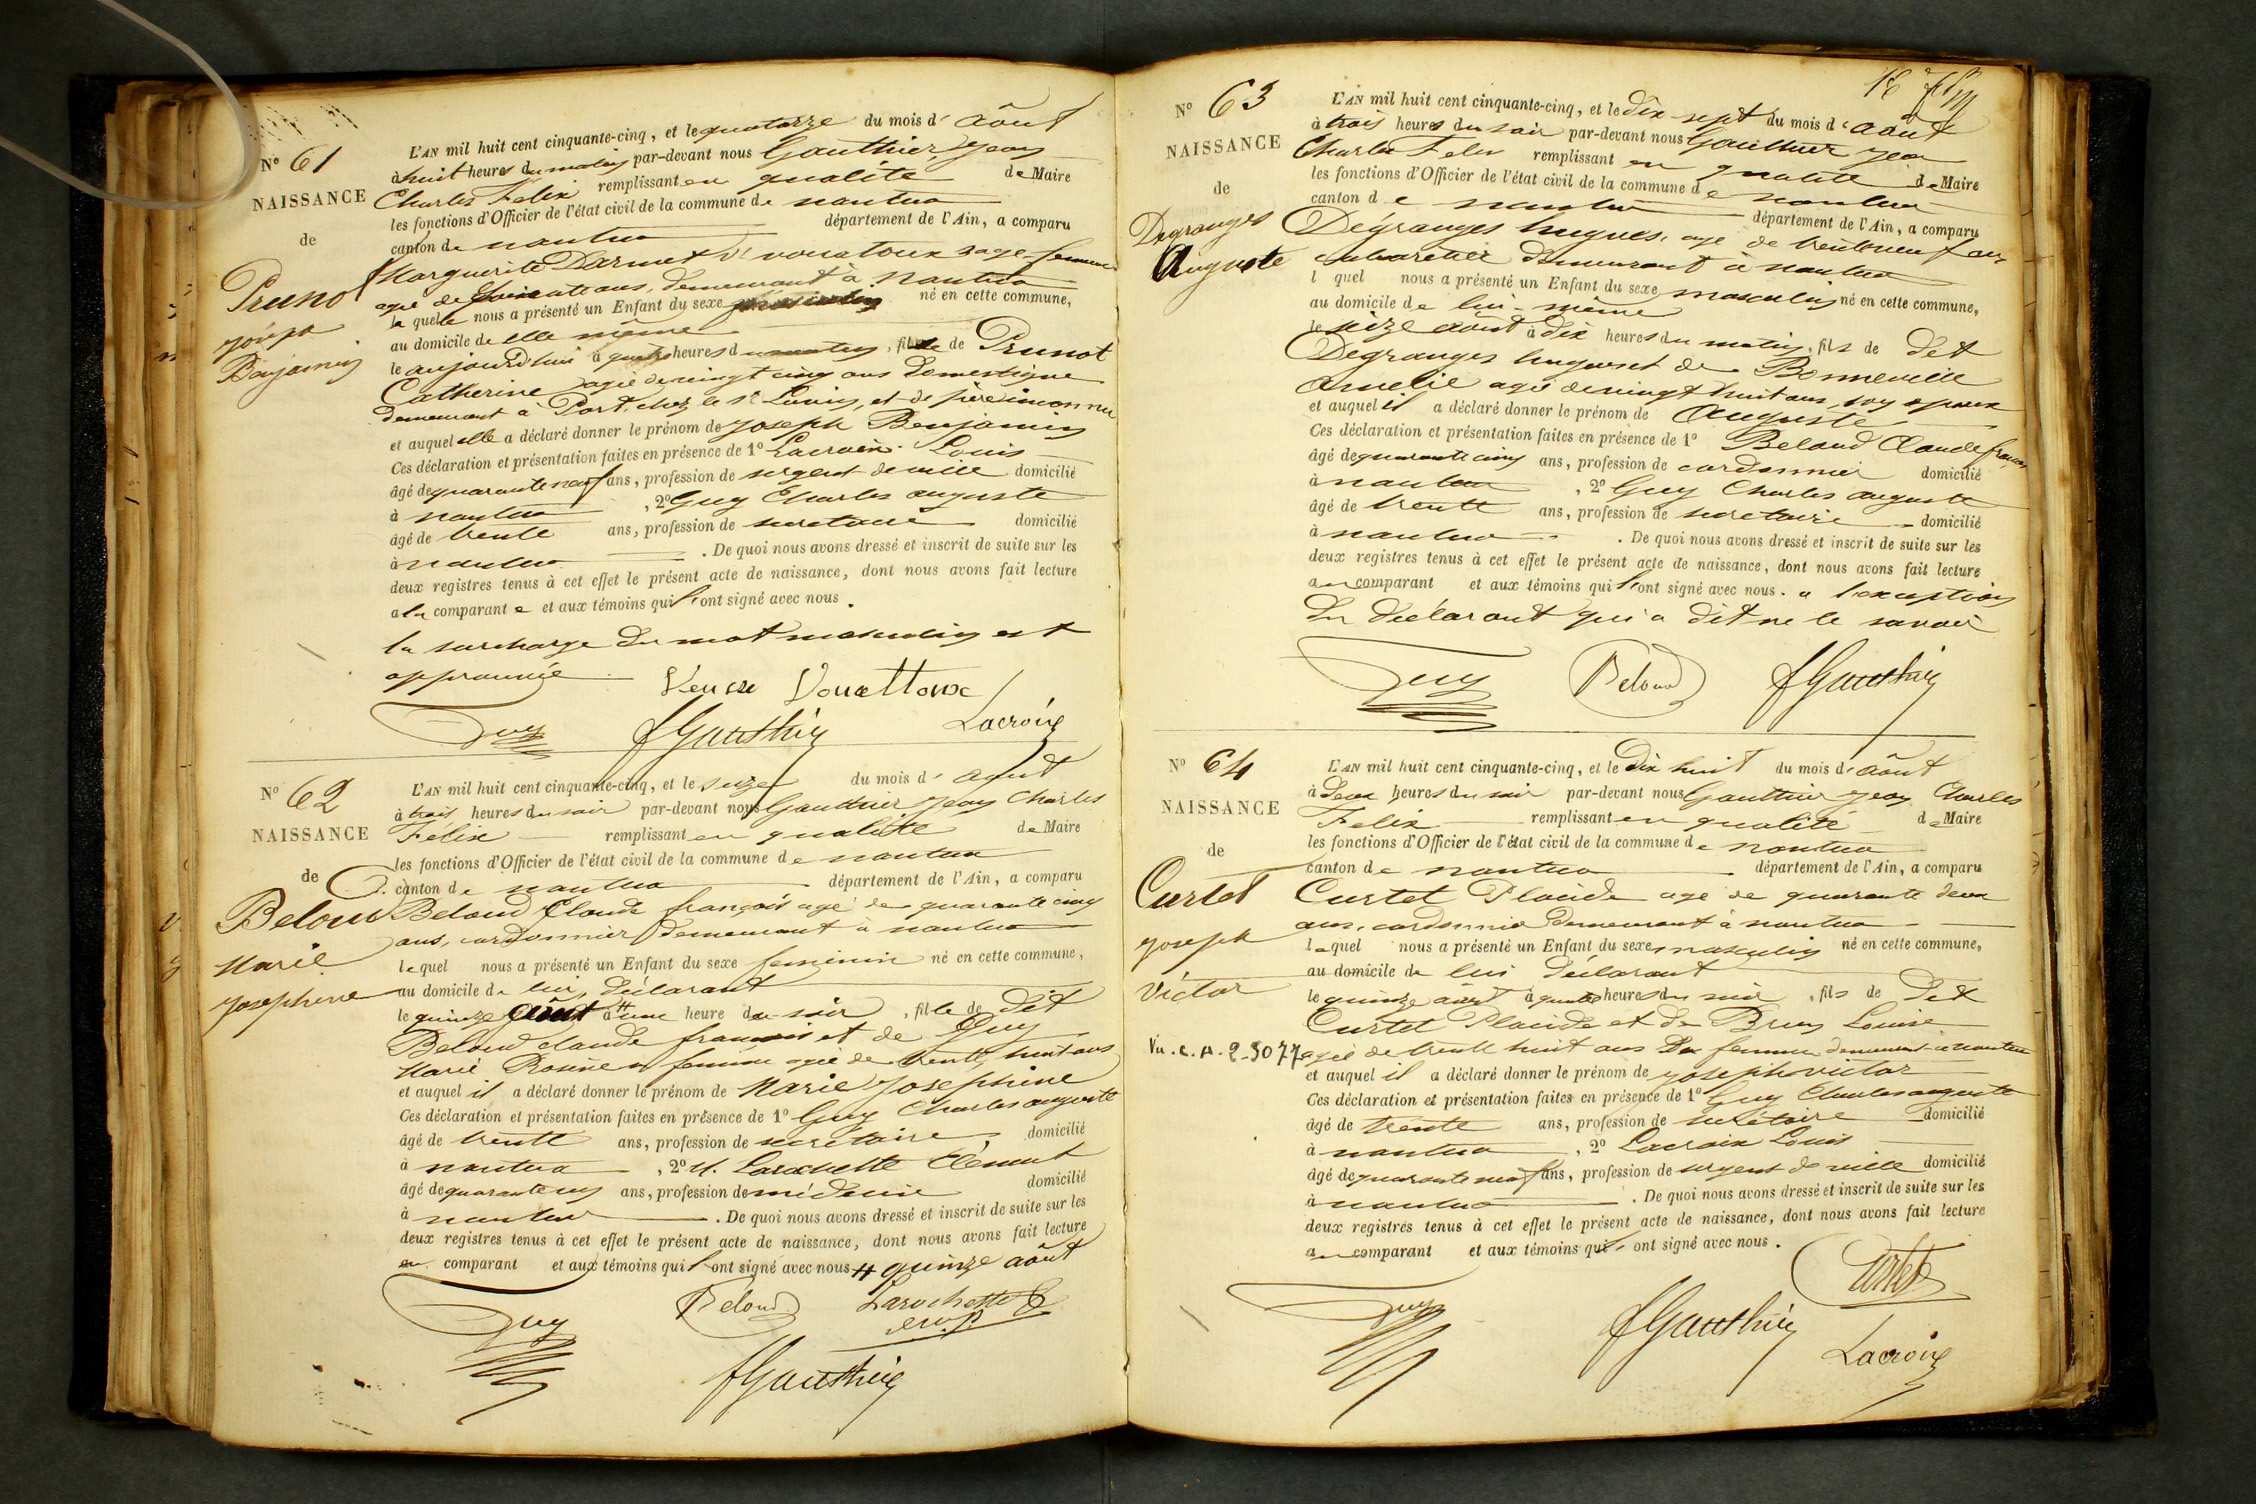 N° 61
NAISSANCE
de
Prunot
joseph
Benjamin
L'AN mil huit cent cinquante-cinq, et le quatorze du mois d'août
à huit heures du matin par-devant nous Gauthier, Jean
Charles Felix remplissant en qualité de Maire
les fonctions d'Officier de l'état civil de la commune de nantua
canton de nantua département de l'Ain, a comparu
Marguerite Darmet Ve vouatoux sage-femme
agée de soixante ans, demeurant à Nantua
la quelle nous a présenté un Enfant du sexe masculin né en cette commune,
au domicile de elle même
le aujourd'hui à quatre heures du matin, fils de Prunot
Catherine agée de vingt cinq ans domestique
demeurant à Port, chez le sr, et de père inconnu
et auquel elle a déclaré donner le prénom de joseph Benjamin
Ces déclaration et présentation faites en présence de 1° Lacroix Louis
âgé de quarante neuf ans, profession de sergent de ville domicilié
à nantua, 2° Guy Charles auguste
âgé de trente ans, profession de secretaire domicilié
à nantua. De quoi nous avons dressé et inscrit de suite sur les
deux registres tenus à cet effet le présent acte de naissance, dont nous avons fait lecture
a la comparante et aux témoins qui l'ont signé avec nous.
la surcharge du mot masculin est
approuvée
Veuve Vouattoux
Guy fGauthier Lacroix
N° 62
NAISSANCE
de
Beloud
Marie
josephine
L'AN mil huit cent cinquante-cinq, et le seize du mois d'août
à trois heures du soir par-devant nous Gauthier Jean Charles
Félix remplissant en qualité de Maire
les fonctions d'Officier de l'état civil de la commune de nantua
canton de nantua département de l'Ain, a comparu
Beloud Claude françois agé de quarante cinq
ans, cordonnier demeurant à nantua
lequel nous a présenté un Enfant du sexe feminin né en cette commune,
au domicile de lui, déclarant
le quinze août à une heure du soir, fille de dit
Beloud claude francois et de Guy
Marie Rosine sa femme agée de trente huit ans
et auquel il a déclaré donner le prénom de Marie josephine
Ces déclaration et présentation faites en présence de 1° Guy Charles auguste
âgé de trente ans, profession de secrétaire domicilié
à nantua, 2° M. Larochette Clément
âgé de quarante ans, profession de médecin domicilié
à nantua. De quoi nous avons dressé et inscrit de suite sur les
deux registres tenus à cet effet le présent acte de naissance, dont nous avons fait lecture
au comparant et aux témoins qui l'ont signé avec nous # quinze août
Guy Beloud Larochette C
fGauthier
N° 63
NAISSANCE
de
Degranges
Auguste
L'AN mil huit cent cinquante-cinq, et le dix sept du mois d'août
à trois heures du soir par-devant nous Gauthier Jean
Charles Felix remplissant en qualité de Maire
les fonctions d'Officier de l'état civil de la commune de nantua
canton de nantua département de l'Ain, a comparu
Dégranges hugues, agé de trente neuf ans
cabaretier demeurant à nantua
l quel nous a présenté un Enfant du sexe masculin né en cette commune,
au domicile de lui-même
le seize août à dix heures du matin, fils de dit
Degranges hugues et de Bonneville
Amelie agée de vingt huit ans, son epouse
et auquel il a déclaré donner le prénom de Auguste
Ces déclaration et présentation faites en présence de 1° Beloud Claude françois
âgé de quarante cinq ans, profession de cordonnier domicilié
à nantua, 2° Guy Charles auguste
âgé de trente ans, profession de secretaire domicilié
à nantua. De quoi nous avons dressé et inscrit de suite sur les
deux registres tenus à cet effet le présent acte de naissance, dont nous avons fait lecture
au comparant et aux témoins qui l'ont signé avec nous. a l'exception
du déclarant qui a dit ne le savoir
Guy Beloud fGauthier
N° 64
NAISSANCE
de
Curtet
joseph
Victor
L'AN mil huit cent cinquante-cinq, et le dix huit du mois d'août
à deux heures du soir par-devant nous Gauthier Jean Charles
Felix remplissant en qualité de Maire
les fonctions d'Officier de l'état civil de la commune de nantua
canton de nantua département de l'Ain, a comparu
Curtet Placide agé de quarante deux
ans, cordonnier demeurant à nantua
lequel nous a présenté un Enfant du sexe masculin né en cette commune,
au domicile de lui déclarant
le quinze août à quatre heures du soir, fils de dit
Curtet Placide et de Brun Louise
agée de trente huit ans sa femme demeurant à nantua
et auquel il a déclaré donner le prénom de joseph victor
Ces déclaration et présentation faites en présence de 1° Guy Charles auguste
âgé de trente ans, profession de secrétaire domicilié
à nantua, 2° Lacroix Louis
âgé de quarante neuf ans, profession de sergent de ville domicilié
à nantua. De quoi nous avons dressé et inscrit de suite sur les
deux registres tenus à cet effet le présent acte de naissance, dont nous avons fait lecture
au comparant et aux témoins qui l'ont signé avec nous.
Curtet
Guy fGauthier
Lacroix